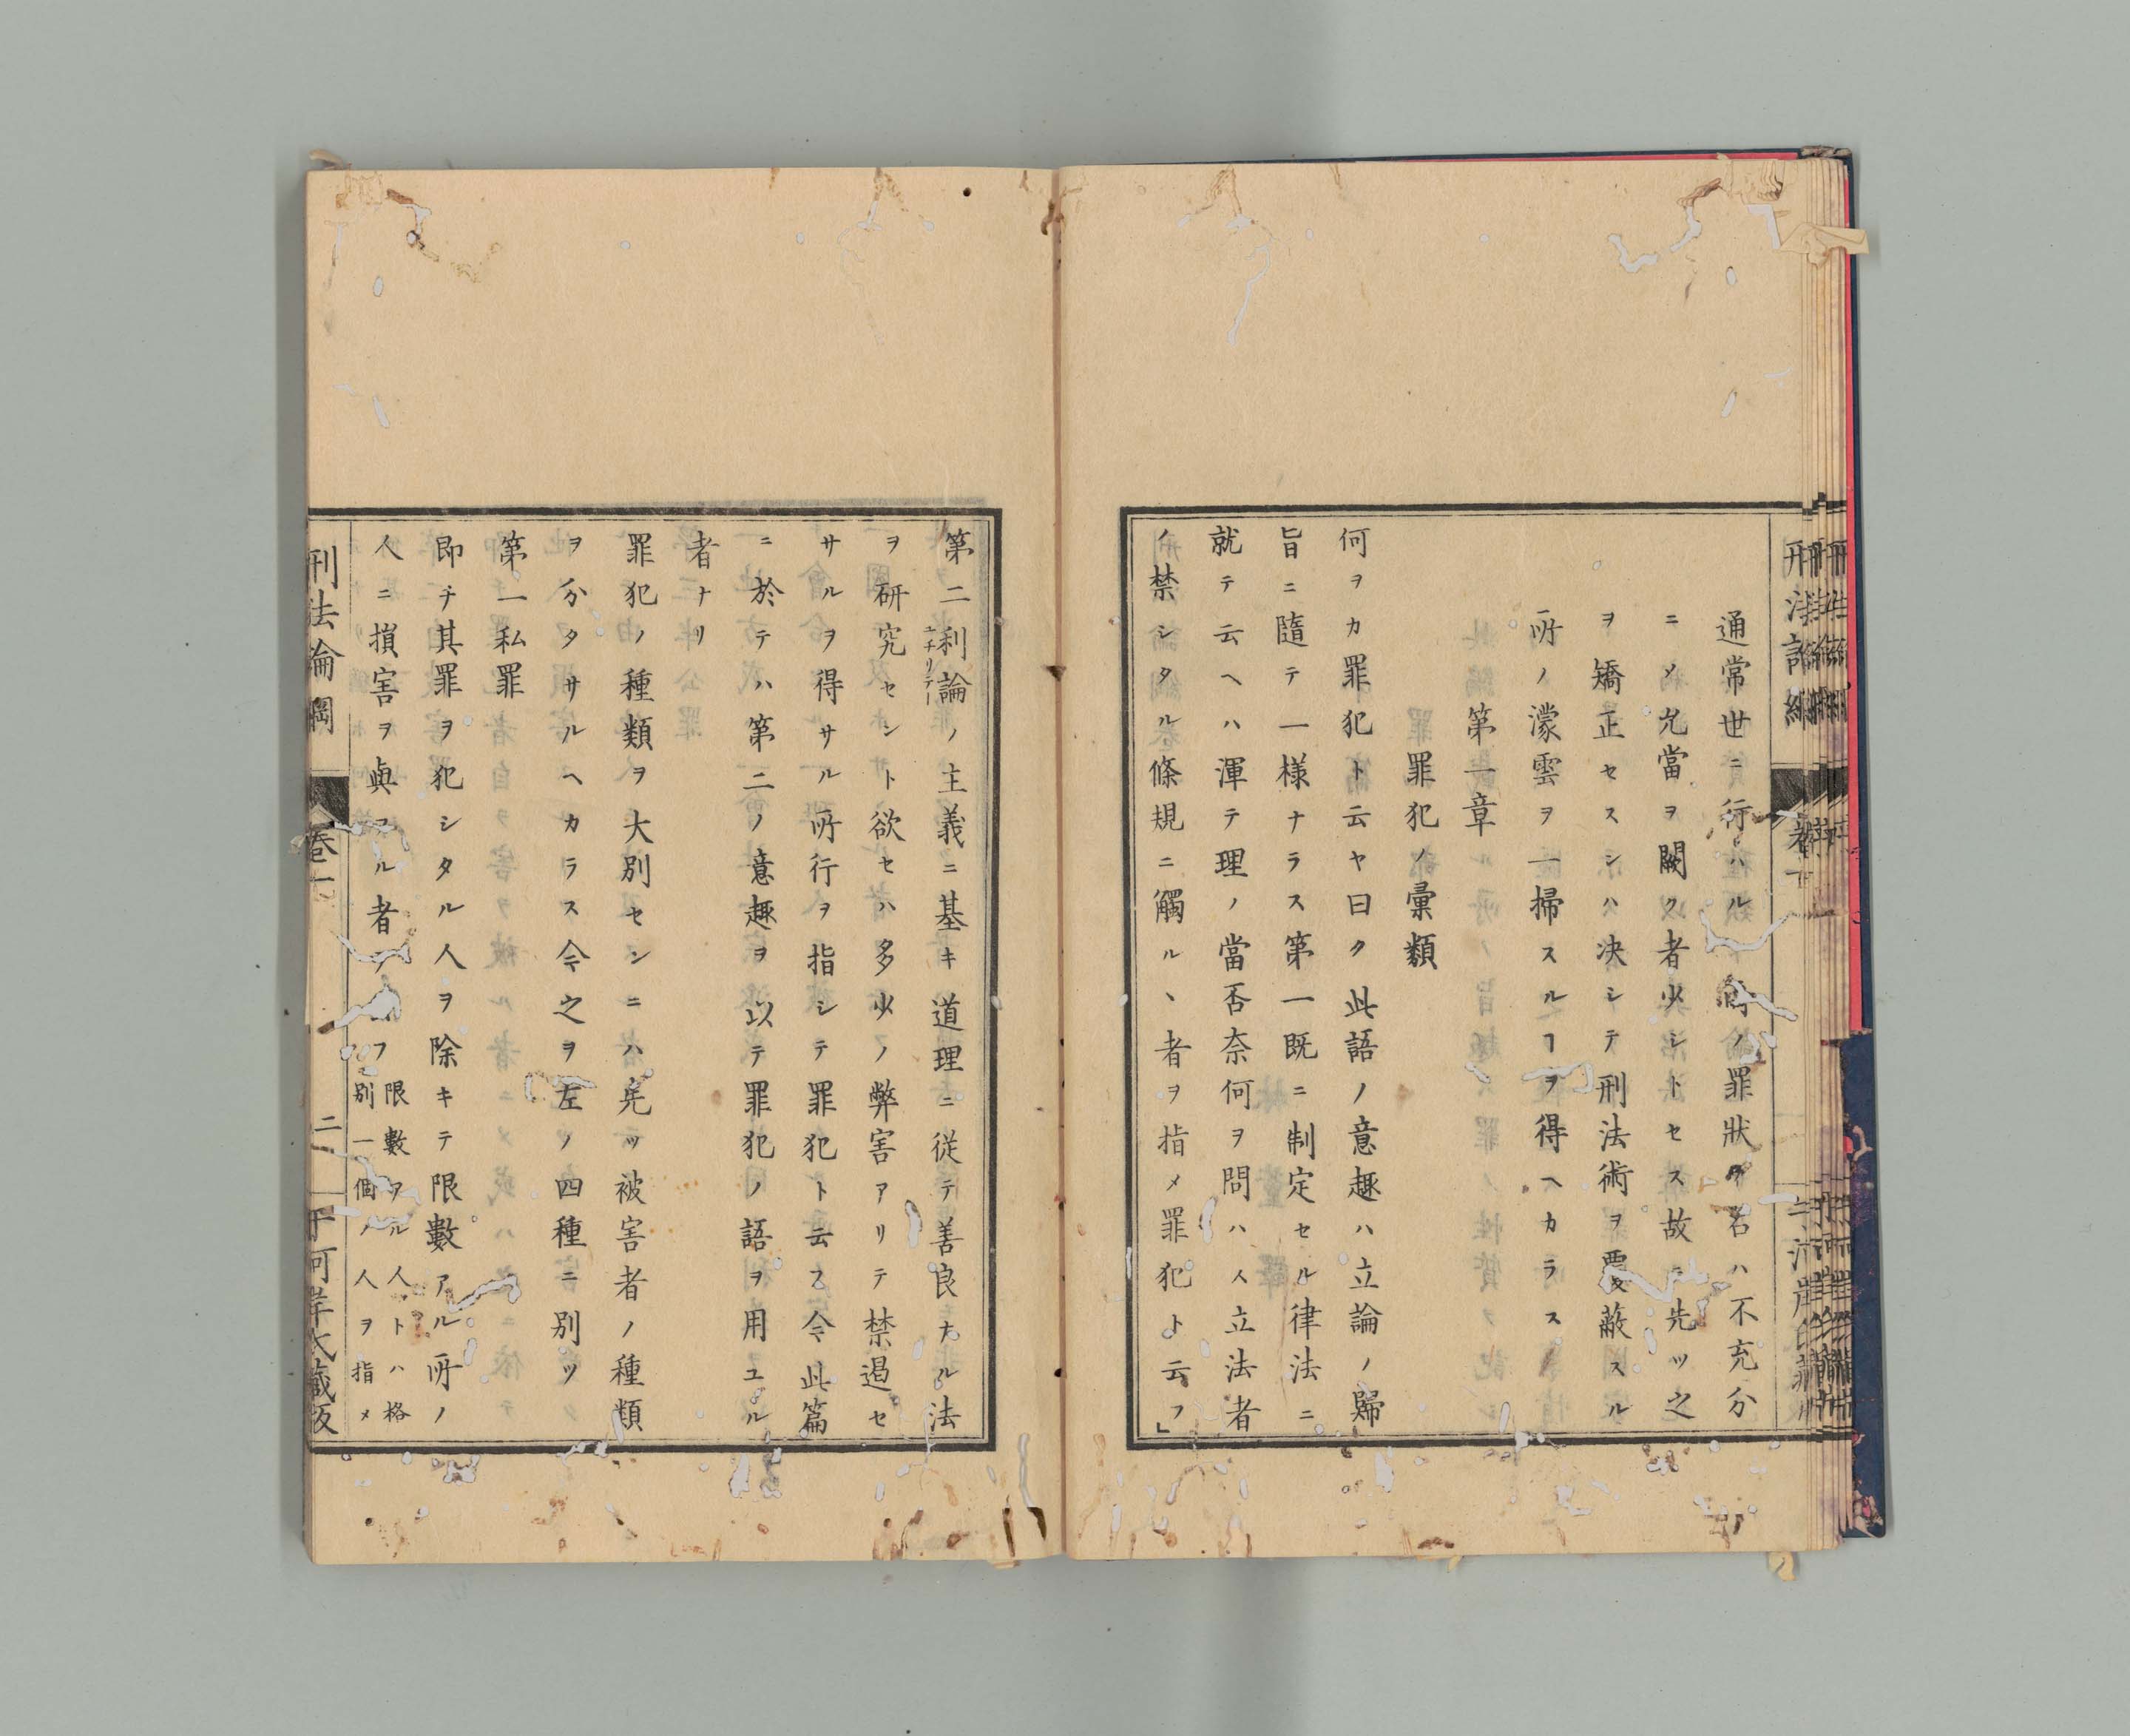 通常世ニ行ハルヽ所ノ罪狀ノ名ハ不充分
ニメ允當ヲ闕ク者少シトセス故ニ先ツ之
ヲ矯正セスシハ决シテ刑法術ヲ覆蔽スル
所ノ濛雲ヲ一掃スルヿヲ得ヘカラス
第一章
罪犯ノ彙類
何ヲカ罪犯ト云ヤ曰ク此語ノ意趣ハ立論ノ歸
旨ニ隨テ一樣ナラス第一既ニ制定セル律法ニ
就テ云ヘハ渾テ理ノ當否奈何ヲ問ハス立法者
ノ禁シタル條規ニ觸ルヽ者ヲ指メ罪犯ト云フ」
第二利論ノ主義ニ基キ道理ニ從テ善良ナル法
ユチリテー
ヲ研究セント欲セハ多少ノ弊害アリテ禁遏セ
サルヲ得サル所行ヲ指シテ罪犯ト云フ今此篇
ニ於テハ第二ノ意趣ヲ以テ罪犯ノ語ヲ用ユル
者ナリ
罪犯ノ種類ヲ大別センニハ先ツ被害者ノ種類
ヲ分タサルヘカラス今之ヲ左ノ四種ニ別ツ
第一私罪
即チ其罪ヲ犯シタル人ヲ除キテ限數アル所ノ
人ニ損害ヲ與フル者ヲ云フ
限數アル人トハ格
別一個ノ人ヲ指メ
刑法論綱
卷一
二
十河岸氏藏版